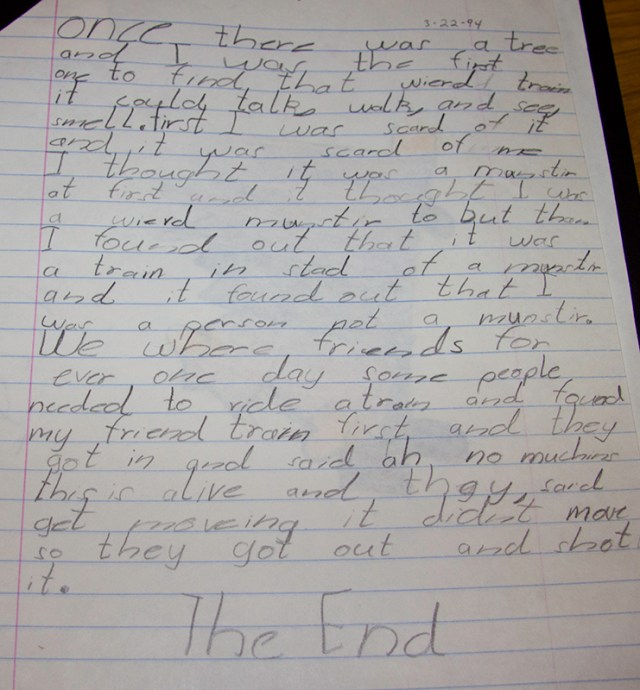 3-22-94
once there was a tree
and I was the first
one to find that wierd train
it could talk, walk, and see,
smell. first I was scard of it
and it was scard of me
I thought it was a munstir
at first and it thought I was
a wierd munstir to but then
I found out that it was
a train in stad of a munstir
and it found out that I
was a person not a munstir.
We where friends for
ever one day some people
needed to ride a train and found
my friend train first and they
got in and said ah no muchins
this is alive and they, said
get moveing it didnt move
so they got out and shot
it.
The End